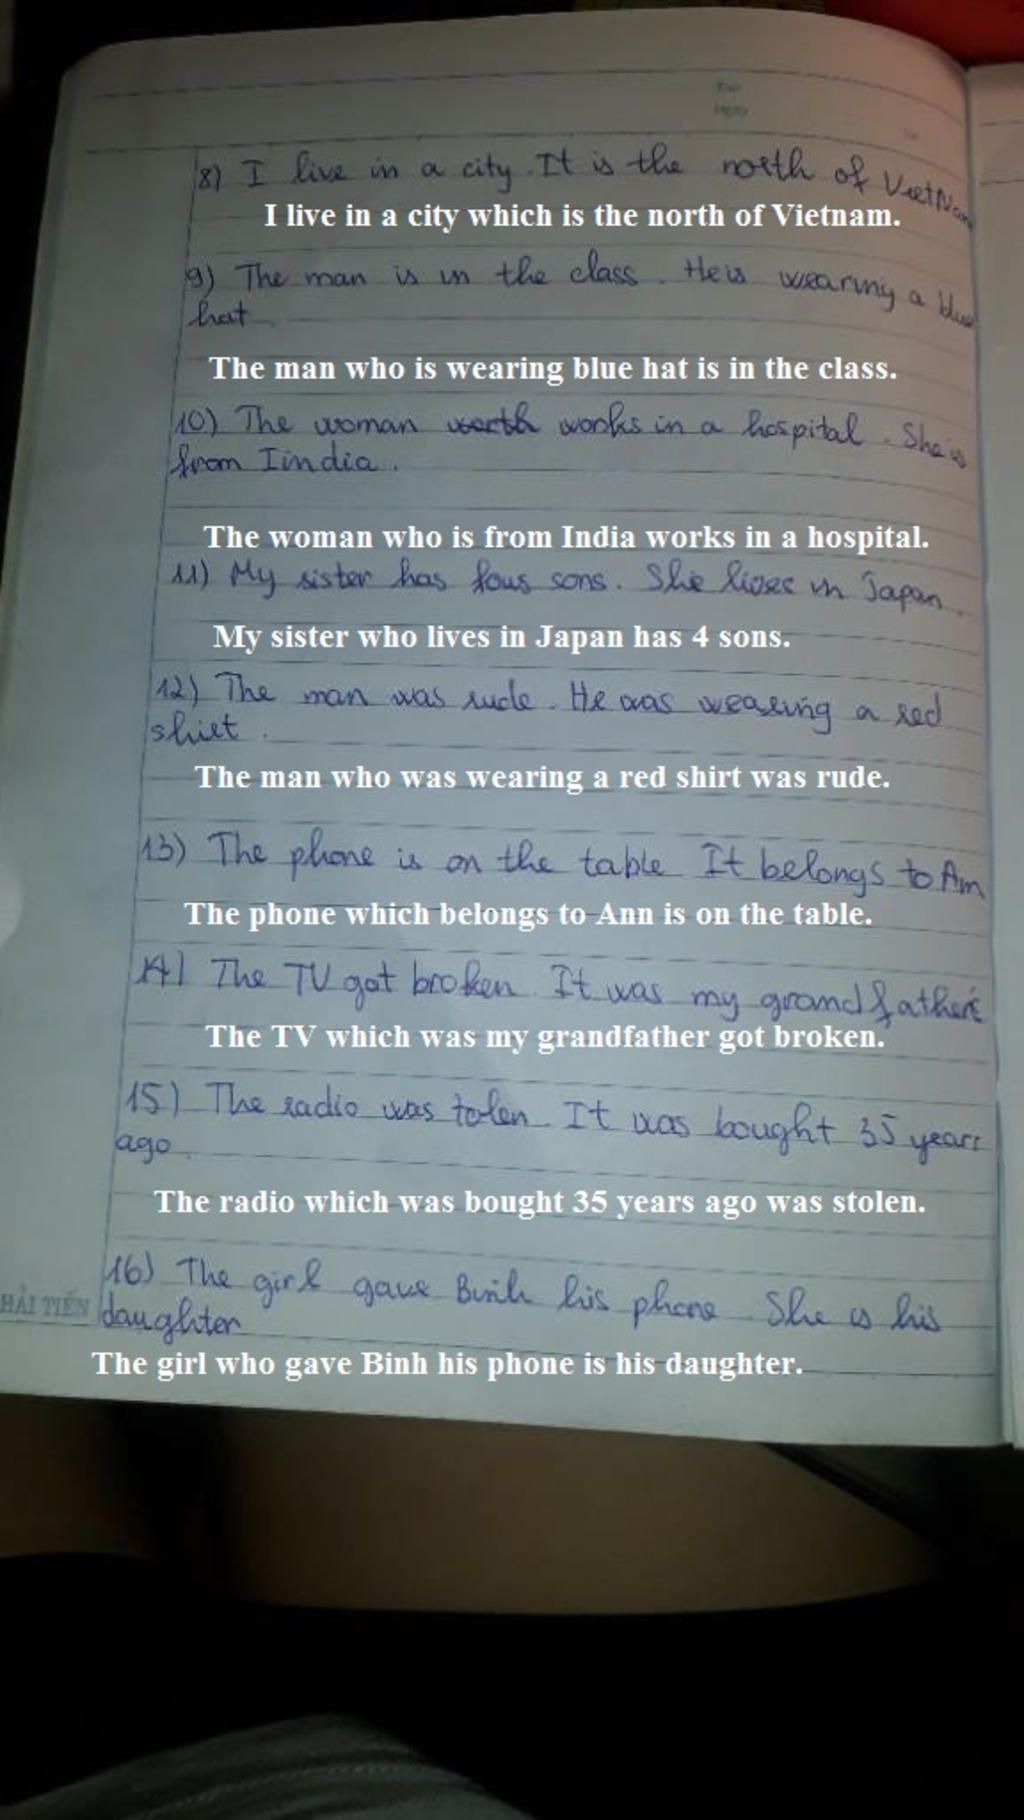 Thứ
Ngày
8) I live in a city. It is the north of VietNam
I live in a city which is the north of Vietnam.
9) The man is in the class. He is wearing a blue
hat.
The man who is wearing blue hat is in the class.
10) The woman works in a hospital. She is
from Iindia.
The woman who is from India works in a hospital.
11) My sister has four sons. She lives in Japan.
My sister who lives in Japan has 4 sons.
12) The man was rude. He was wearing a red
shirt.
The man who was wearing a red shirt was rude.
13) The phone is on the table It belongs to Ann
The phone which belongs to Ann is on the table.
14) The TV got broken. It was my grandfather's
The TV which was my grandfather got broken.
15) The radio was tolen. It was bought 35 years
ago.
The radio which was bought 35 years ago was stolen.
16) The girl gave Binh his phone. She is his
HẢI TIẾN daughter
The girl who gave Binh his phone is his daughter.